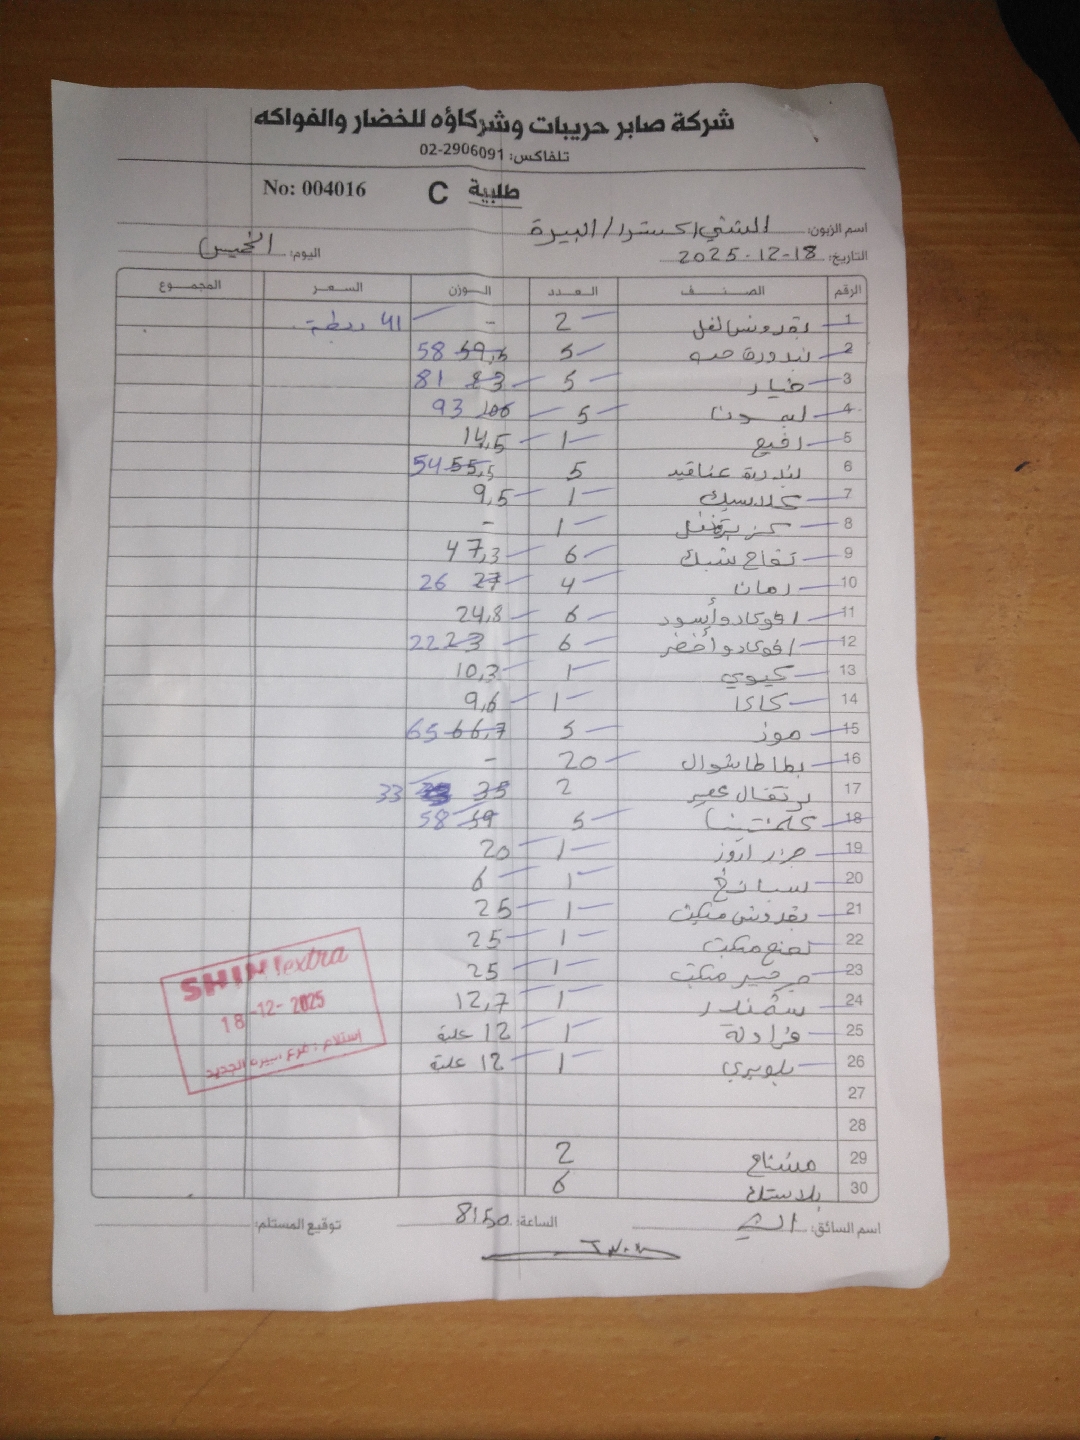 شركة صابر حريبات وشركاؤه للخضار والفواكه
تلفاكس: 02-2906091
طلبية C No: 004016
اسم الزبون: الشني اكسترا / البيرة
التاريخ: 18-12-2025 اليوم: الخميس
الرقم الصنف العدد الوزن السعر المجموع
1 بقدونس لفل 2 - 41 ربطة
2 بندورة حبه 5 59,5 58
3 خيار 5 83 81
4 ليمون 5 106 93
5 1 14,5
6 بندورة عناقيد 5 55,5 54
7 كلاسيك 1 9,5
8 كزبرة فل 1 -
9 تفاح شبك 6 47,3
10 رمان 4 27 26
11 افوكادو أسود 6 24,8
12 افوكادو أخضر 6 23 22
13 كيوي 1 10,3
14 كاكا 1 9,6
15 موز 5 66,7 65
16 بطاطا شوال 20 -
17 برتقال عصير 2 35 33
18 كلمنتينا 5 59 58
19 جزر 1 20
20 سبانخ 1 6
21 بقدونس مكيت 1 25
22 نعنع مكيت 1 25
23 جرجير مكيت 1 25
24 شمندر 1 12,7
25 فراولة 1 12 علبة
26 بلوبيري 1 12 علبة
27
28
29 مشتاح 2
30 بلاستك 6
SHINI extra
18-12-2025
استلام: فرع البيره الجديد
اسم السائق: الساعة: 8:50 توقيع المستلم: